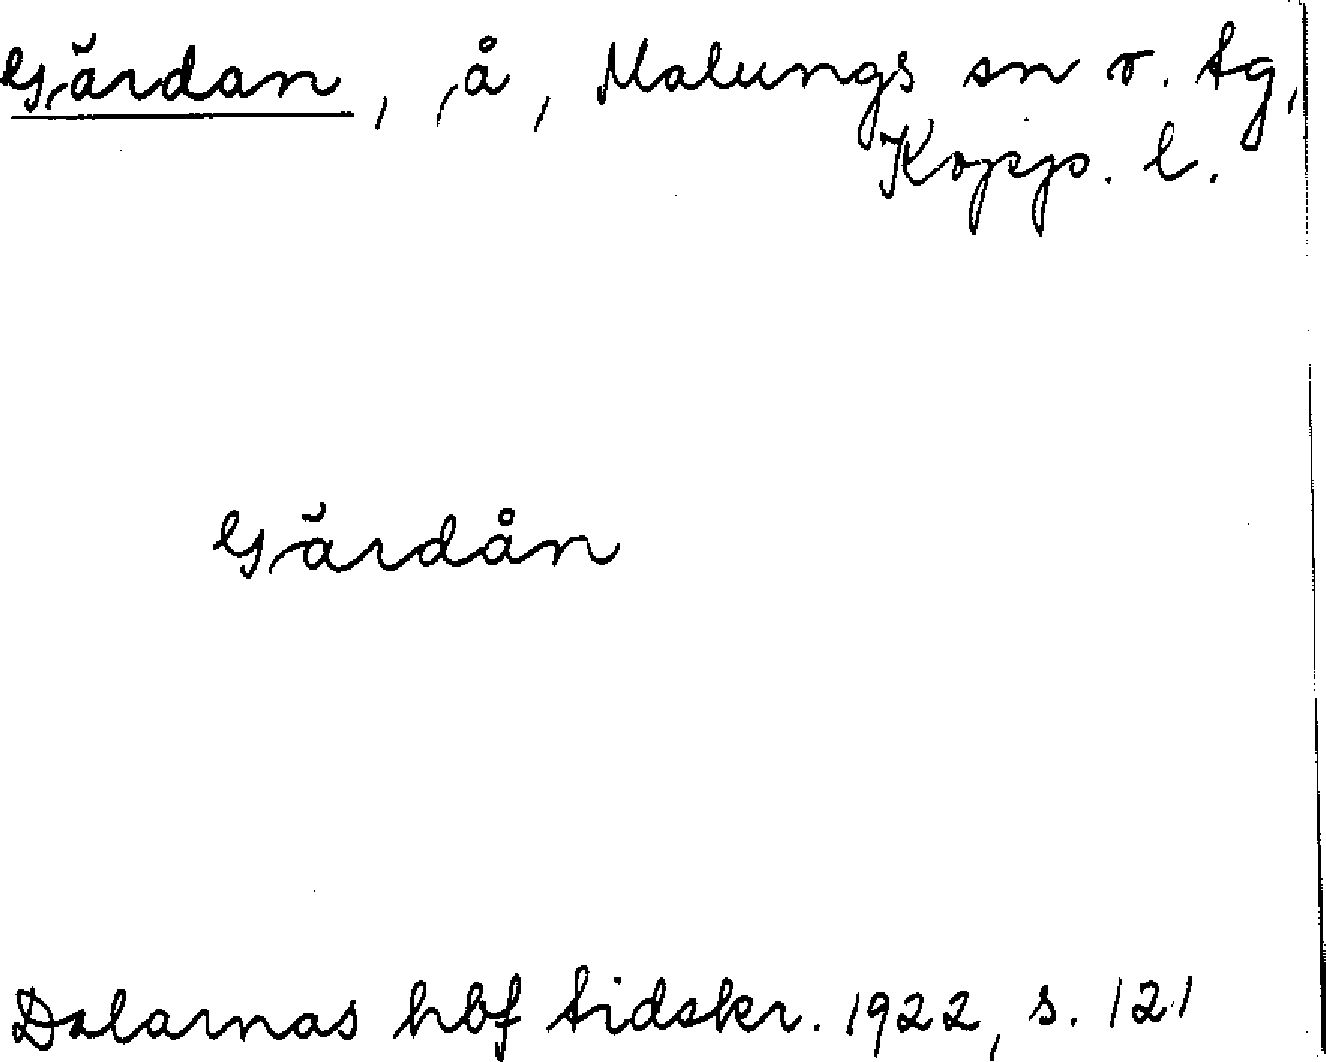 Gärdan, å, Malungs sn o. tg,
Kopp. l.
Gärdån
Dalarnas hbf tidskr. 1922, s. 121